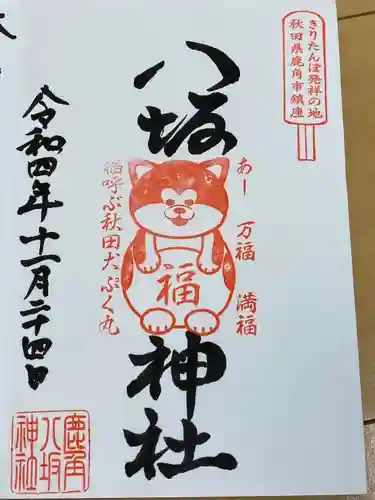 きりたんぽ発祥の地
秋田県鹿角市鎮座
八坂
神社
あー　万福　満福
福
福呼ぶ秋田犬ぷく丸
令和四年十一月二十四日
鹿角
八坂
神社